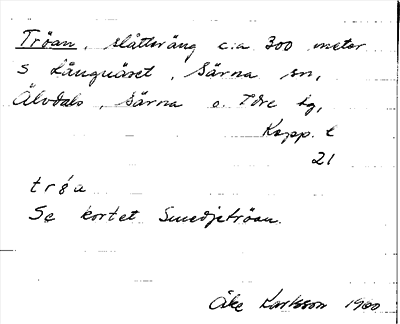 Tröan, slåttsräng c:a 300 meter
S Långnäset, Särna sn,
Älvdals, Särna o. Idre tg,
Kopp. l
21
tröa
Se kortet Smedjetröan.
Åke Karlsson 1980